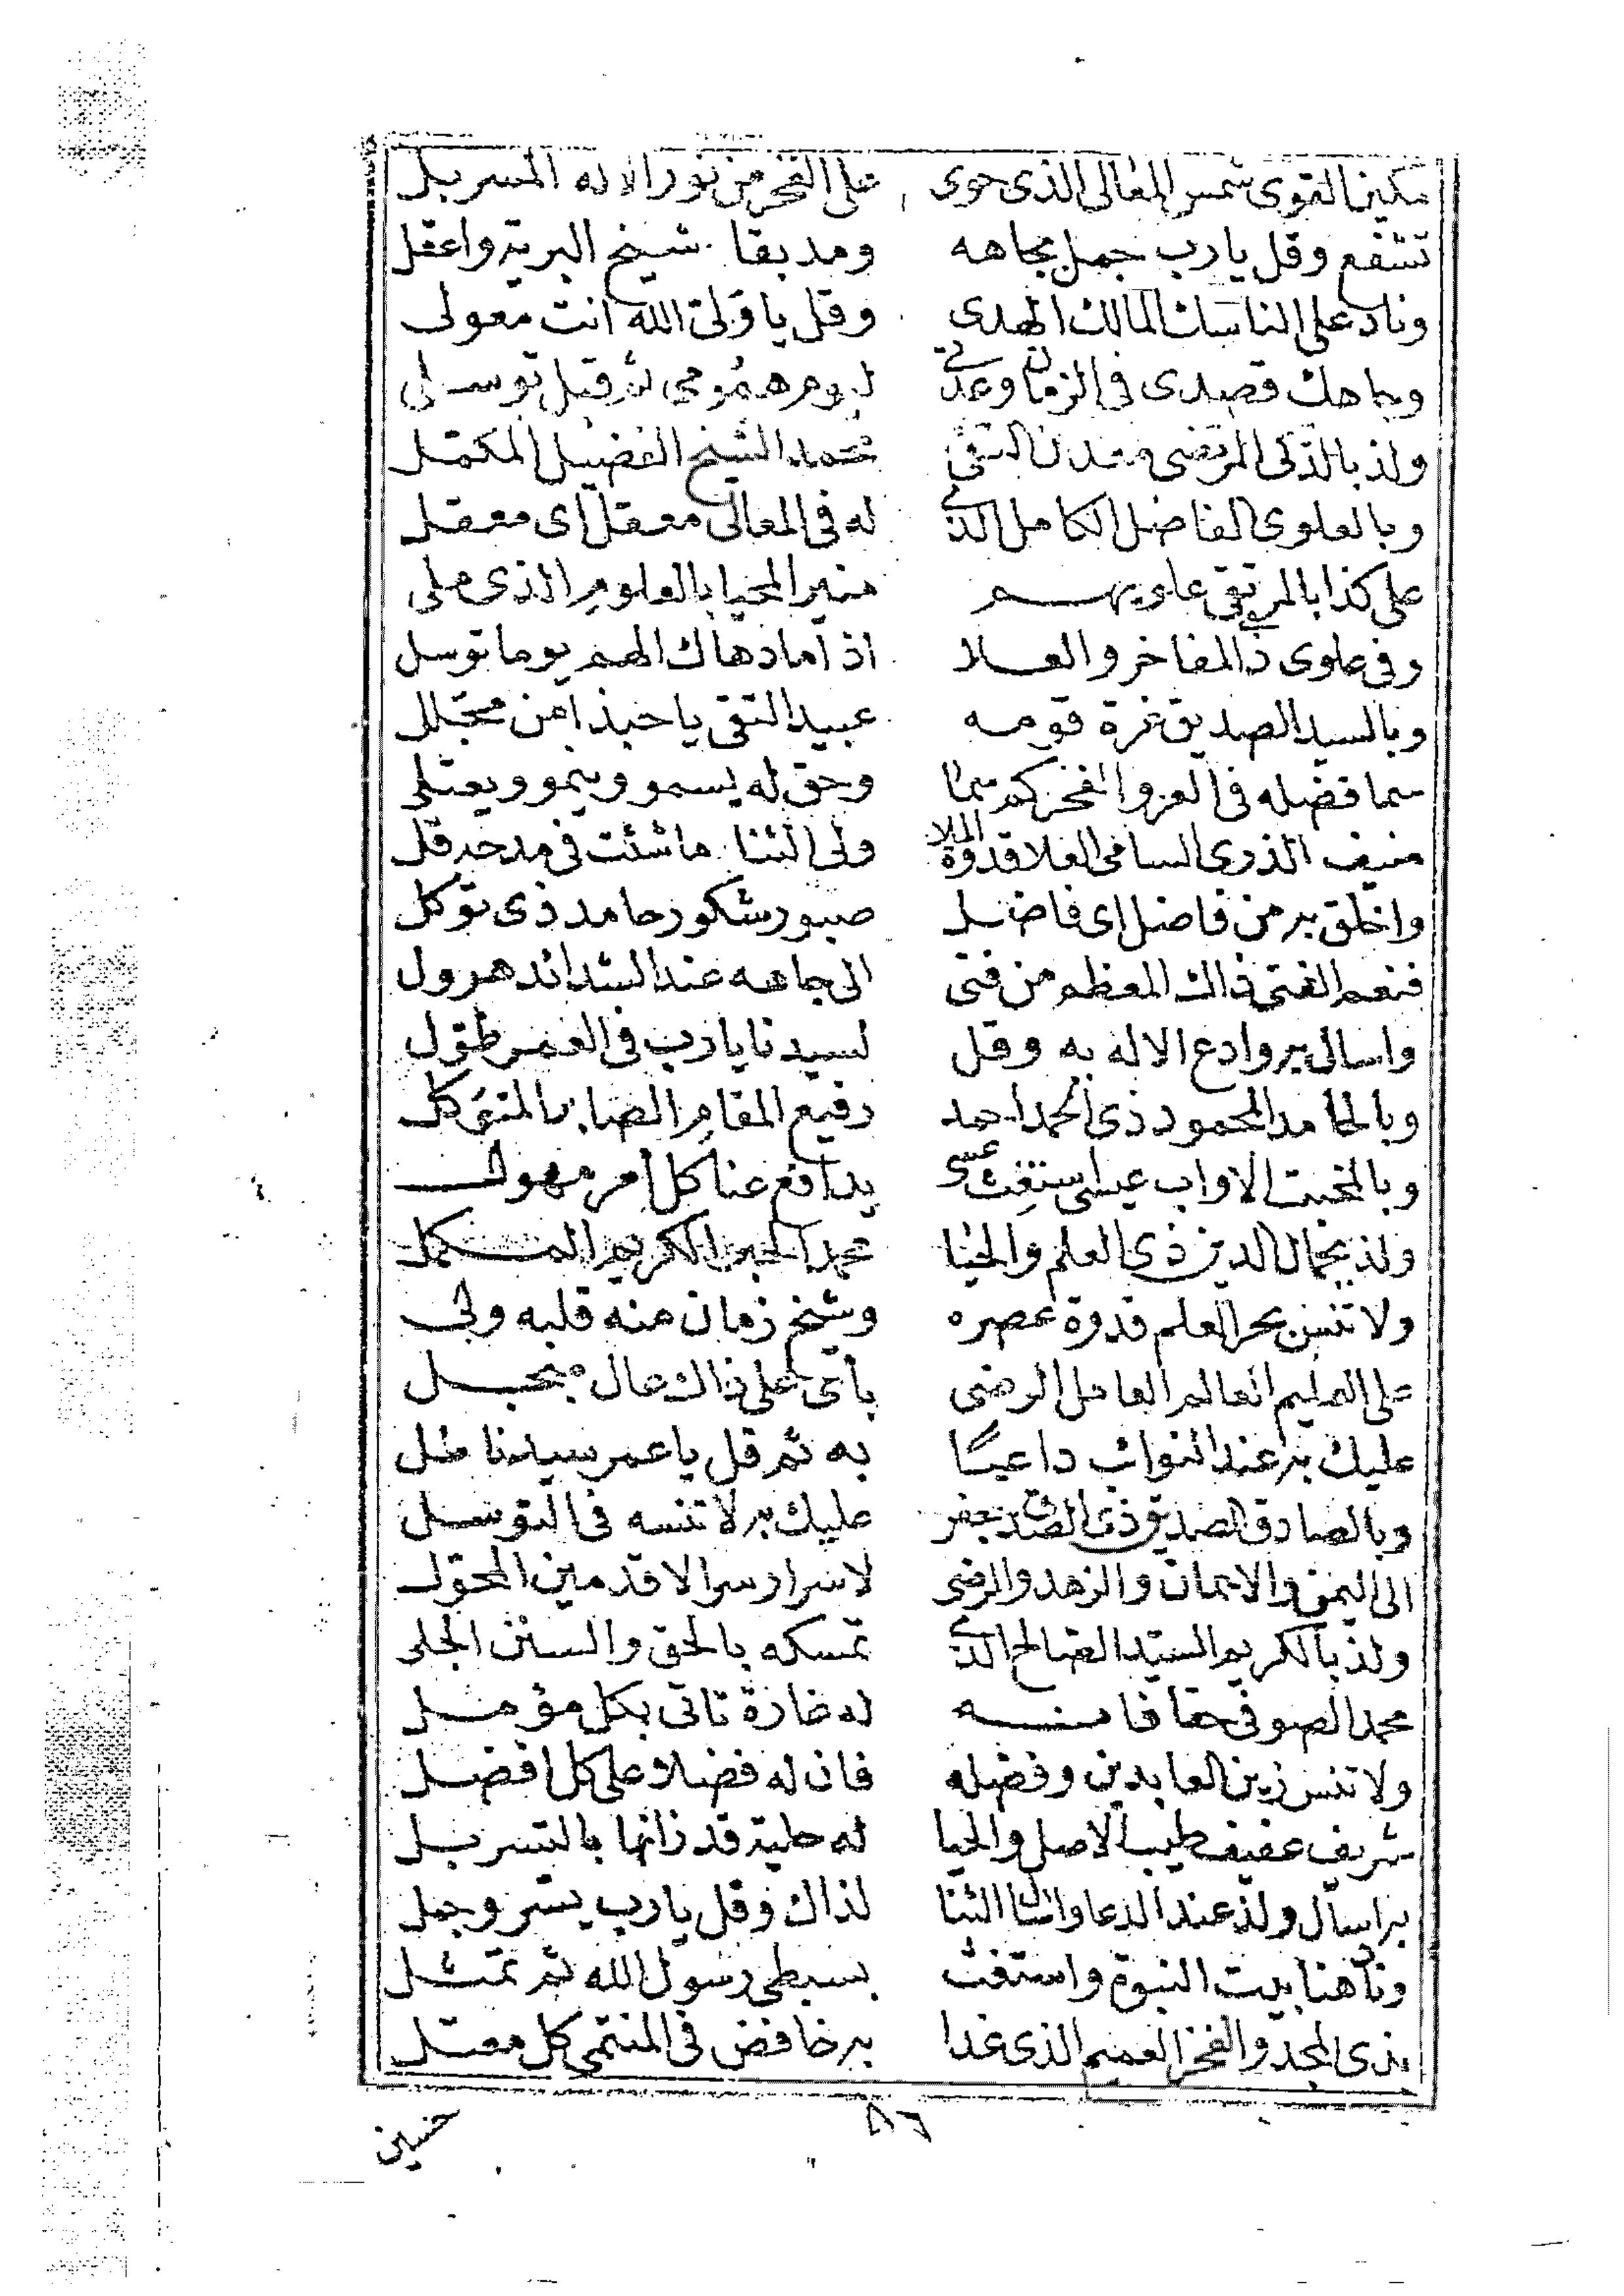 مكين القوى شمس المعالى الذى حوى على الفخر من نور الاله المسربل
تشفع وقل يا رب جمل بجاهه ومد بقا شيخ البرية واعقل
وناد على الناسك المالك الهدى وقل يا ولى الله انت معولى
وجاهك قصدى فى الزمان وعدتى ليوم همومى ثم قبل توسلى
ولذ بالذكى المرتضى معدن التقى محمد الشيخ الفضيل المكمل
وبالعلوى الفاضل الكامل الذى له فى المعالى معقل اى معقل
على كذا بالمرتقى علويهم منير المحيا بالعلوم الذى ملى
وفى علوى ذا المفاخر والعلا اذا ما دهاك الهم يوما توسل
وبالسيد الصديق غرة قومه عبيد التقى يا حبذا من مبجل
سما فضله فى العز والفخر كم سما وحق له يسمو وينمو ويعتلى
منيف الذرى السامى العلا قدوة الملا ولى الثنا ما شئت فى مدحه قل
واخلق به من فاضل اى فاضل صبور شكور حامد ذى توكل
فنعم الفتى ذاك المعظم من فتى الى جاهه عند الشدائد هرول
واسال به وادع الاله به وقل لسيدنا يا رب فى العمر طول
وبالحامد المحمود ذى الحمد احمد رفيع المقام الصابر المتوكل
وبالمخبت الاواب عيسى استغث عسى يدافع عنا كل امر مهول
ولذ بجمال الدين ذى العلم والحيا محمد الحبر الكريم المكمل
ولا تنس بحر العلم قدوة عصره وشيخ زمان منه قلبه ولى
على العليم العالم العامل الرضى باتى على ذاك عال مبجل
عليك به عند النوائب داعيا به ثم قل يا عمر سيدنا طل
وبالصادق الصديق ذى الصدق جعفر عليك به لا تنسه فى التوسل
الى اليمن والايمان والزهد والرضى لاسرار سر الاقدمين المحول
ولذ بالكريم السيد الصالح الذى تمسكه بالحق والسنن الجلى
محمد الصوفى حقا فانه له غارة تاتى بكل مؤمل
ولا تنس زين العابدين وفضله فان له فضلا على كل افضل
شريف عفيف طيب الاصل والحيا له حلية قد زانها بالتسربل
به اسال ولذ عند الدعا وانشا الثنا لذاك وقل يا رب يسر وجمل
وناد هنا بيت النبوة واستغث بسبطى رسول الله ثم تمثل
بذى المجد والفخر العميم الذى غدا به خافض فى المنتمى كل معتل
٨٦
حنين